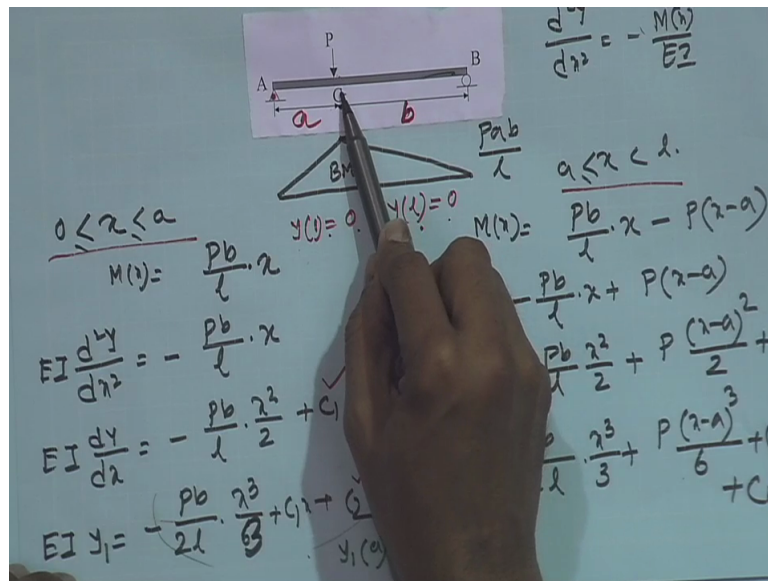 P
A
B
C
a
b
d²y/dx² = - M(x)/EI
BM
Pab/l
y(0) = 0. y(l) = 0
0 ≤ x ≤ a
M(x) = Pb/l · x
EI d²y/dx² = - Pb/l · x
EI dy/dx = - Pb/l · x²/2 + C₁
EI y₁ = - Pb/2l · x³/3 + C₁x + C₂
y₁(a)
a ≤ x < l.
M(x) = Pb/l · x - P(x-a)
- Pb/l · x + P(x-a)
Pb/l x²/2 + P (x-a)²/2 +
l · x³/3 + P(x-a)³/6 +
+ C